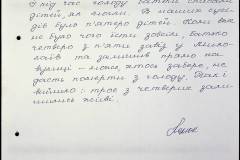 І під час голоду батьки спасали
дітей, як могли. В наших сусі-
дів було п'ятеро дітей. Коли вже
не було чого їсти зовсім, батько
четверо з п'яти завіз у Мико-
лаїв та залишив прямо на
вулиці – може, хтось забере, не
дасть померти з голоду. Так і
вийшло: троє з четверих зали-
шились живі.